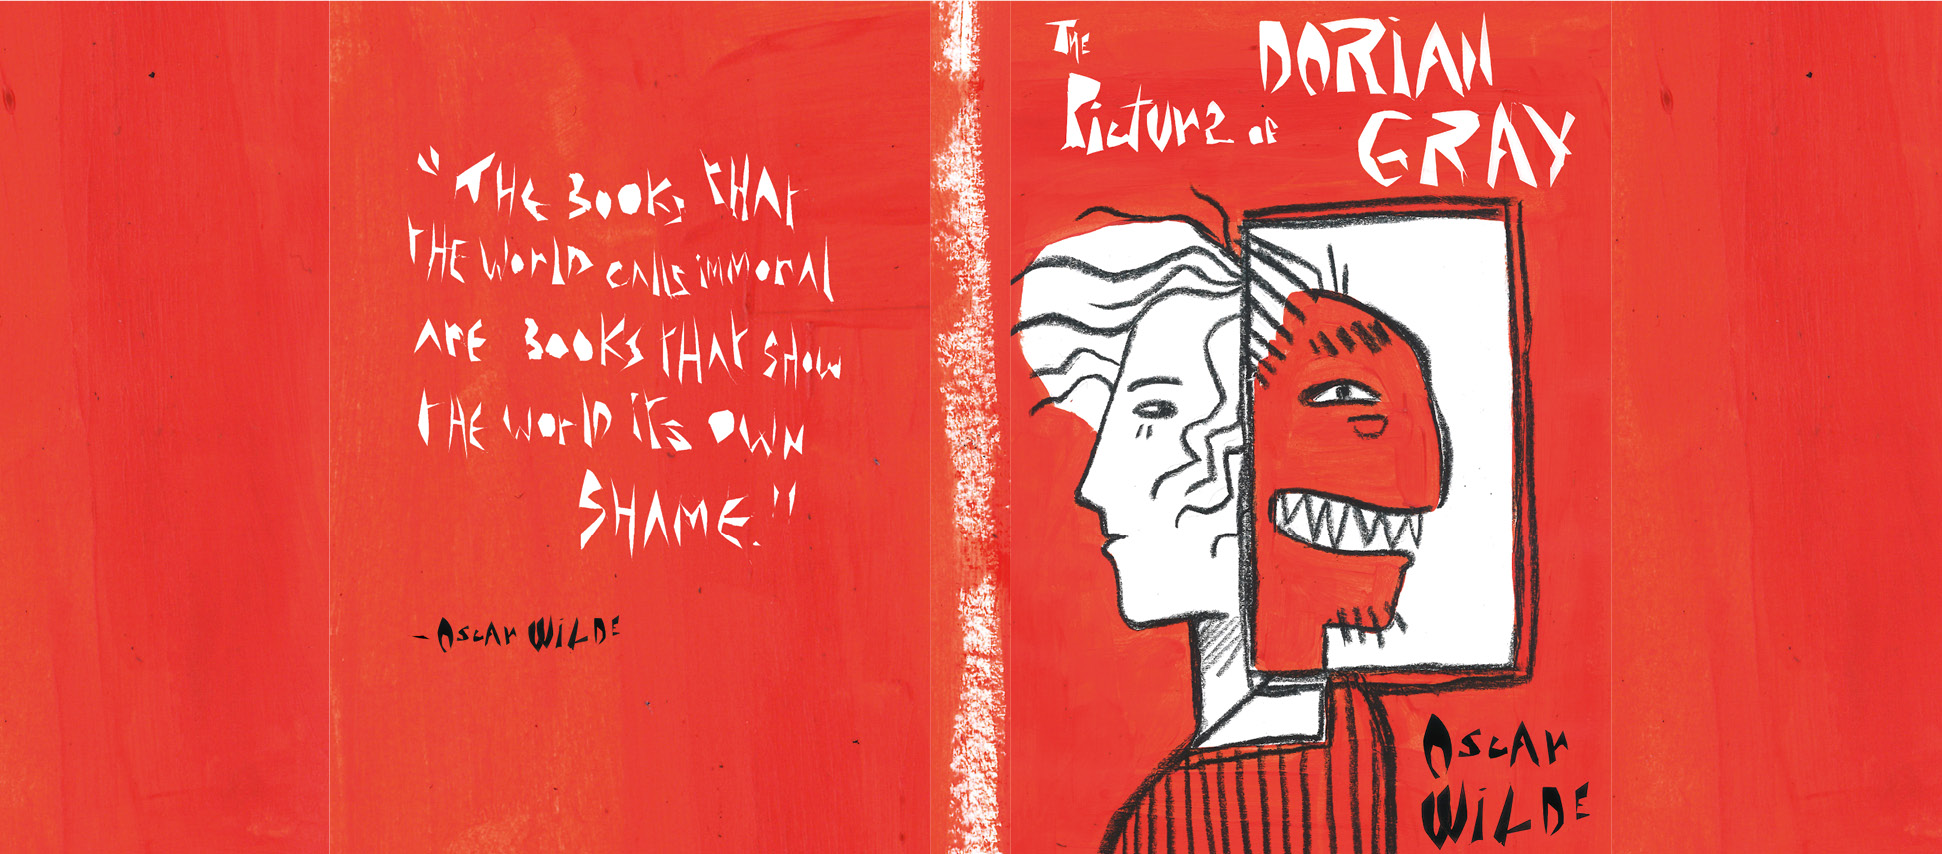 "THE BOOKS THAT
THE WORLD CALLS IMMORAL
ARE BOOKS THAT SHOW
THE WORLD ITS OWN
SHAME."
-OSCAR WILDE
THE
PICTURE OF
DORIAN
GRAY
OSCAR
WILDE